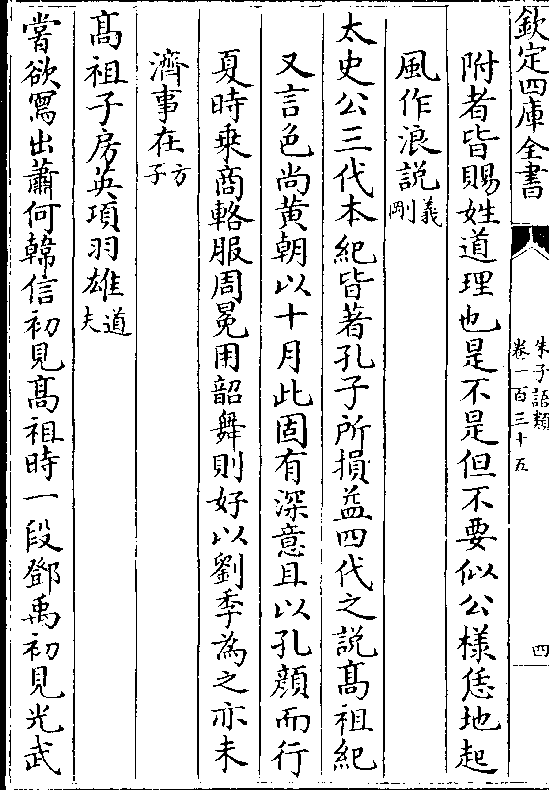 欽定四庫全書
朱子語類
卷一百三十五
四
附者皆賜姓道理也是不是但不要似公樣恁地起
風作浪說義剛
太史公三代本紀皆著孔子所損益四代之說髙祖紀
又言色尚黄朝以十月此固有深意且以孔顔而行
夏時乗商輅服周冕用韶舞則好以劉季為之亦未
濟事在方子
髙祖子房英項羽雄道夫
嘗欲寫出蕭何韓信初見髙祖時一段鄧禹初見光武